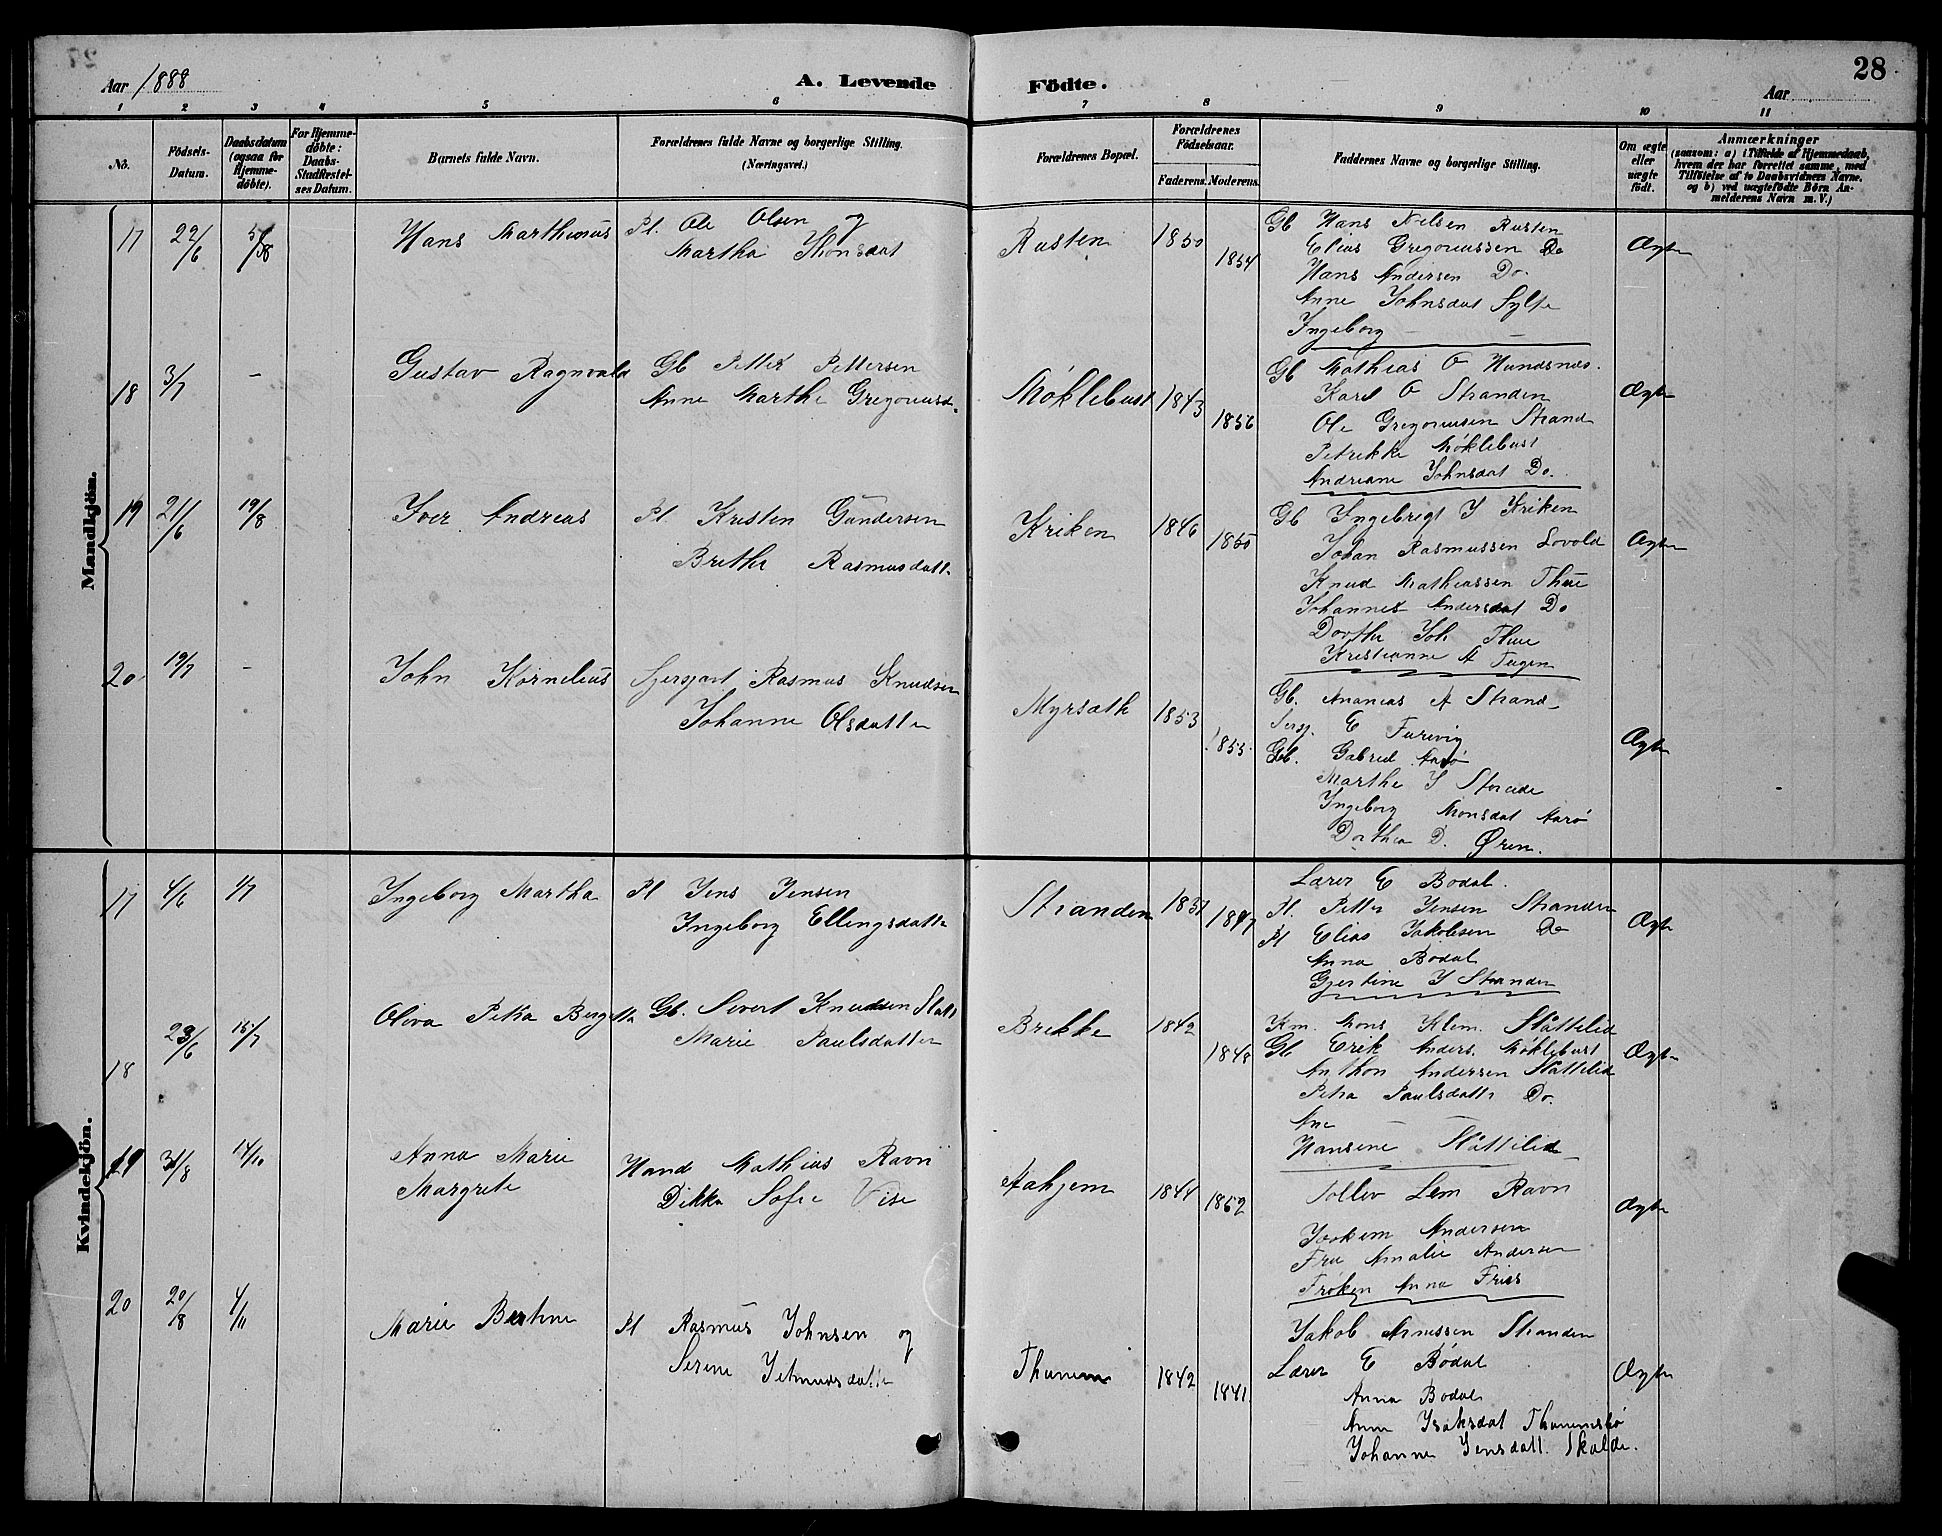 Aar 1888
A. Levende Födte.
Aar
28
1 2 3 4 5 6 7 8 9 10 11
No.
Födsels-Datum.
Daabsdatum (ogsaa for Hjemme-döbte).
For Hjemme-döbte: Daabs-Stadfæstel-ses Datum.
Barnets fulde Navn.
Forældrenes fulde Navne og borgerlige Stilling. (Næringsvei.)
Forældrenes Bopæl.
Forældrenes Födselsaar.
Faderens. Moderens.
Faddernes Navne og borgerlige Stilling.
Om ægte eller uægte födt.
Anmærkninger
(saasom: a) i Tilfælde af Hjemmedaab, hvem der har forrettet samme, med Tilföielse af to Daabsvidners Navne, og b) ved uægtefödte Börn Anmelderens Navn m. V.)
Mandkjön.
17 22/6 5/8 Hans Marthinus Pl. Ole Olsen og
Martha Thonsdat
Rusten 1850 1854
Gb Hans Nielsen Rusten
Elias Gregoriussen Do
Hans Andersen Do
Anne Johnsdat Sylte
Ingeborg —
Ægte
18 3/7 — Gustav Ragnvald Gb Petter Pettersen
Anne Marthe Gregoriusd.
Møklebust 1843 1856
Gb Mathias O Hundsnes.
Karl O Stranden
Ole Gregoriussen Strand
Petrikke Møklebust
Andriane Johnsdat Do.
Ægte
19 21/6 19/8 Iver Andreas Pl. Kristen Gundersen
Brithe Rasmusdatt.
Kriken 1846 1850
Gb Ingebrigt J Kriken
Johan Rasmussen Lovold
Knud Mathiassen Thue
Johannes Andersdat Do
Dorthe Joh Thue
Kristianne A
Ægte
20 19/7 — John Kornelius Rasmus Knudsen
Johanne Olsdatter
Myrsæth 1853 1855
Gb. Ananias A Strand
Sersj. E Furevig
Gb. Gabriel Aarø
Marthe J
Ingeborg Monsdat Aarø
Dorthea D. Øren.
Ægte
Kvindekjön.
17 4/6 1/7 Ingeborg Martha Pl Jens Jensen
Ingeborg Ellingsdatter
Stranden 1847
Lærer E Bodal.
Pl. Petter Jensen Stranden
Pl Elias Jakobsen Do
Anna Bodal
Gjertine J Stranden
Ægte
18 23/6 15/7 Oliva Petra Bergitta Gb. Sivert Knudsen Slatt
Marie Paulsdatter
Brekke 1842 1848
Km. Mons Klem. Slåttelid
Gb Erik Anders. Møklebust
Anthon Andersen Slåttelid
Petra Paulsdatt Do.
Ane —
Hansine Slåttelid
Ægte
19 31/8 14/10 Anna Marie
Margrete
Hand Mathias Ravn
Dikka Sofie Vise
Aahjem 1844 1852
Tollev Lem Ravn
Joakim Andersen
Fru Amalie Andersen
Frøken Anna Friis
Ægte
20 20/8 4/11 Marie Bertine Pl Rasmus Johnsen og
Serine Jetmundsdatter
Thunem 1842 1841.
Jakob Arnessen Stranden
Lærer E Bødal
Anna Bodal
Anne Isaksdat Thunemsbø
Johanne Jensdatt. Skalde.
Ægte